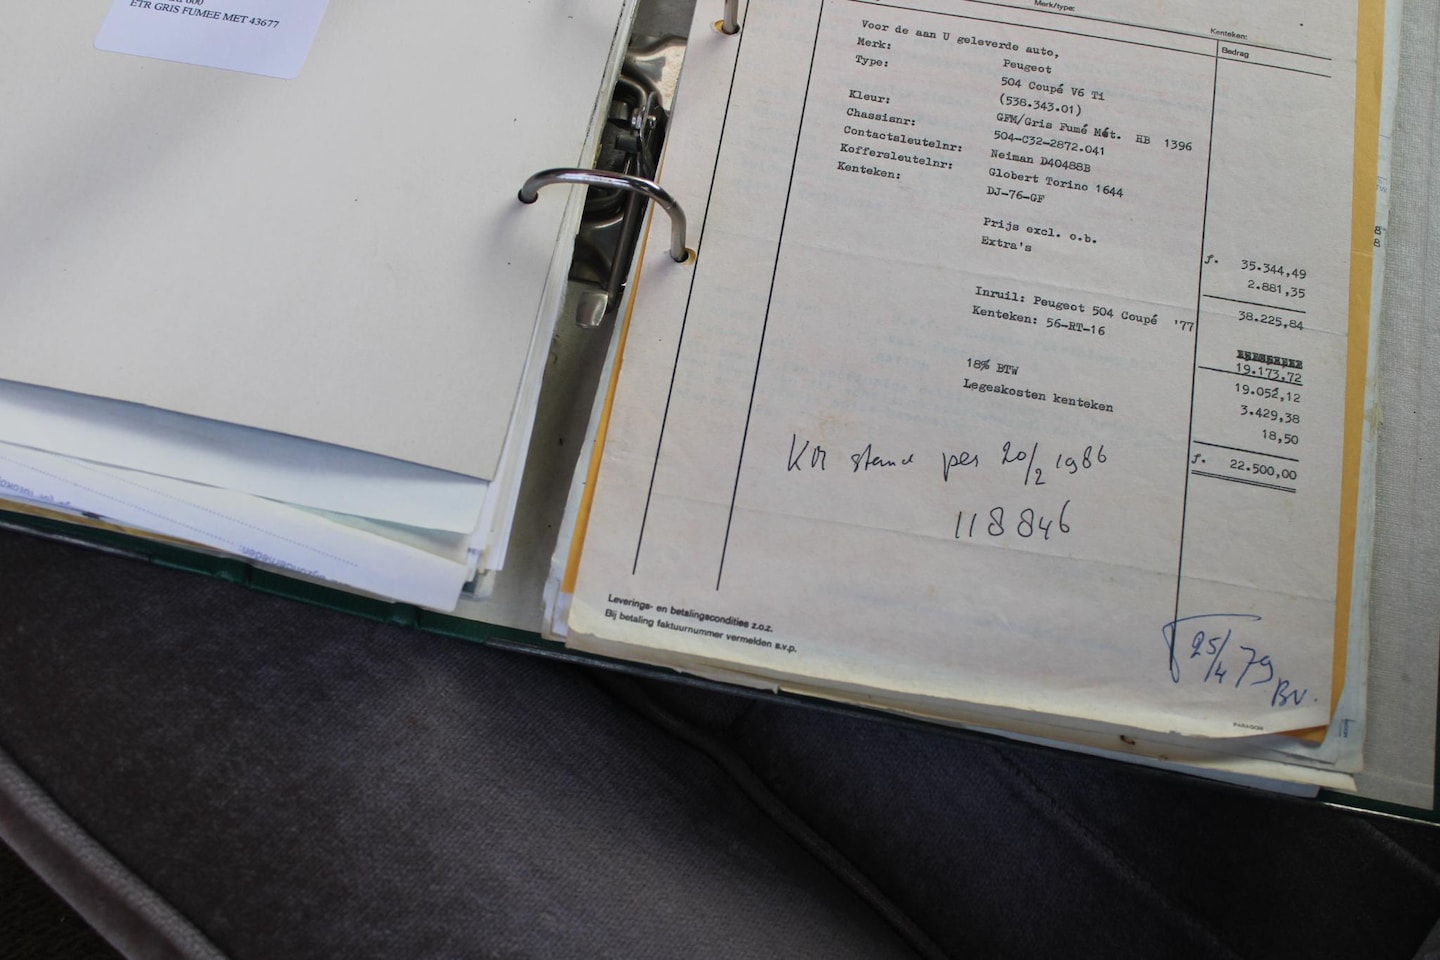 ETR GRIS FUMEE MET 43677
Merk/type:
Kenteken:
Bedrag
Voor de aan U geleverde auto,
Merk: Peugeot
Type: 504 Coupé V6 Ti
(538.343.01)
Kleur: GFM/Gris Fumé Mét. HB 1396
Chassisnr: 504-C32-2872.041
Contactsleutelnr: Neiman D40488B
Koffersleutelnr: Globert Torino 1644
Kenteken: DJ-76-GF
Prijs excl. o.b. f. 35.344,49
Extra's 2.881,35
38.225,84
Inruil: Peugeot 504 Coupé '77
Kenteken: 56-RT-16 19.173,72
19.052,12
18% BTW 3.429,38
Legeskosten kenteken 18,50
f. 22.500,00
KM stand per 20/2 1986
118846
Leverings- en betalingscondities z.o.z.
Bij betaling faktuurnummer vermelden s.v.p.
25/4 79
BV.
PARAGON